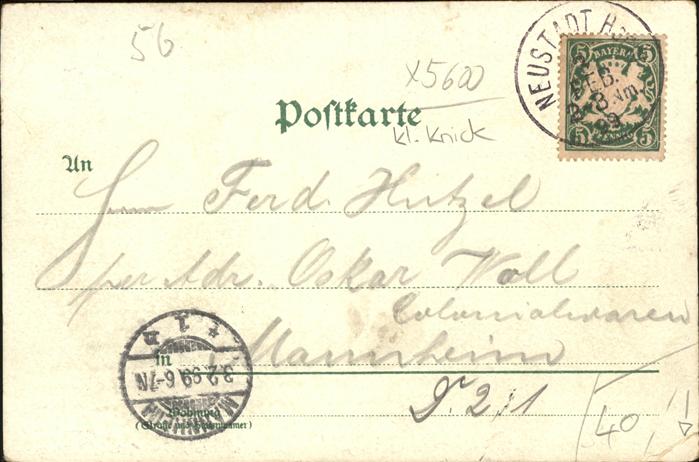 56
x5600
Postkarte
kl. Knick
NEUSTADT
BAYERN
5 5
5 PFENNIG 5
An
Herrn Ferd. Hutzel
per Adr. Oskar Woll
Colonialwaren
in Mannheim
D. 2, 1
MANNHEIM
3.2.99.6-7N
* 1 n
Wohnung
(Straße und Hausnummer)
40